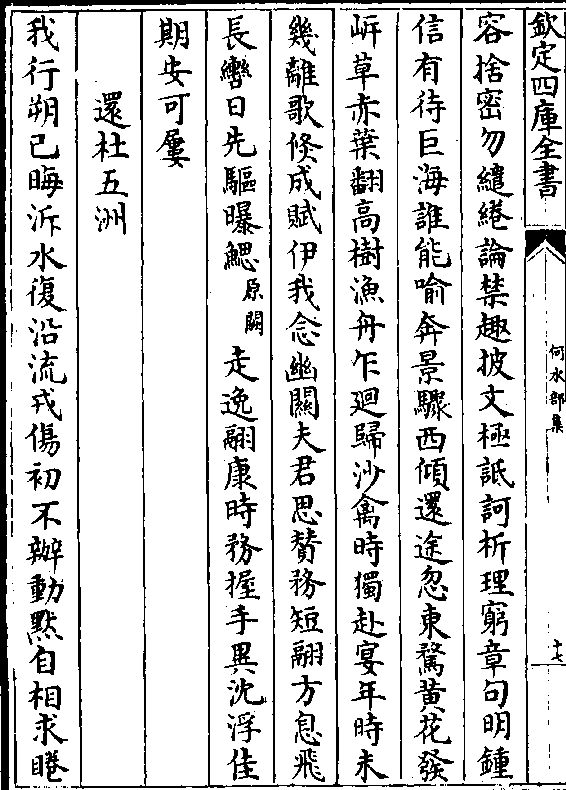 欽定四庫全書
何水部集
十七
容捨密勿繾綣論禁趣披文極詆訶析理窮章句明鍾
信有待巨海誰能喻奔景驟西傾還途忽東騖黄花發
岓草赤葉翻高樹漁舟乍迴歸沙禽時獨赴宴年時未
幾離歌倏成賦伊我念幽關夫君思贊務短翮方息飛
長轡日先驅曝鰓原闕走逸翮康時務握手異沈浮佳
期安可屢
還杜五洲
我行朔已晦泝水復沿流戎傷初不辦動黙自相求睠